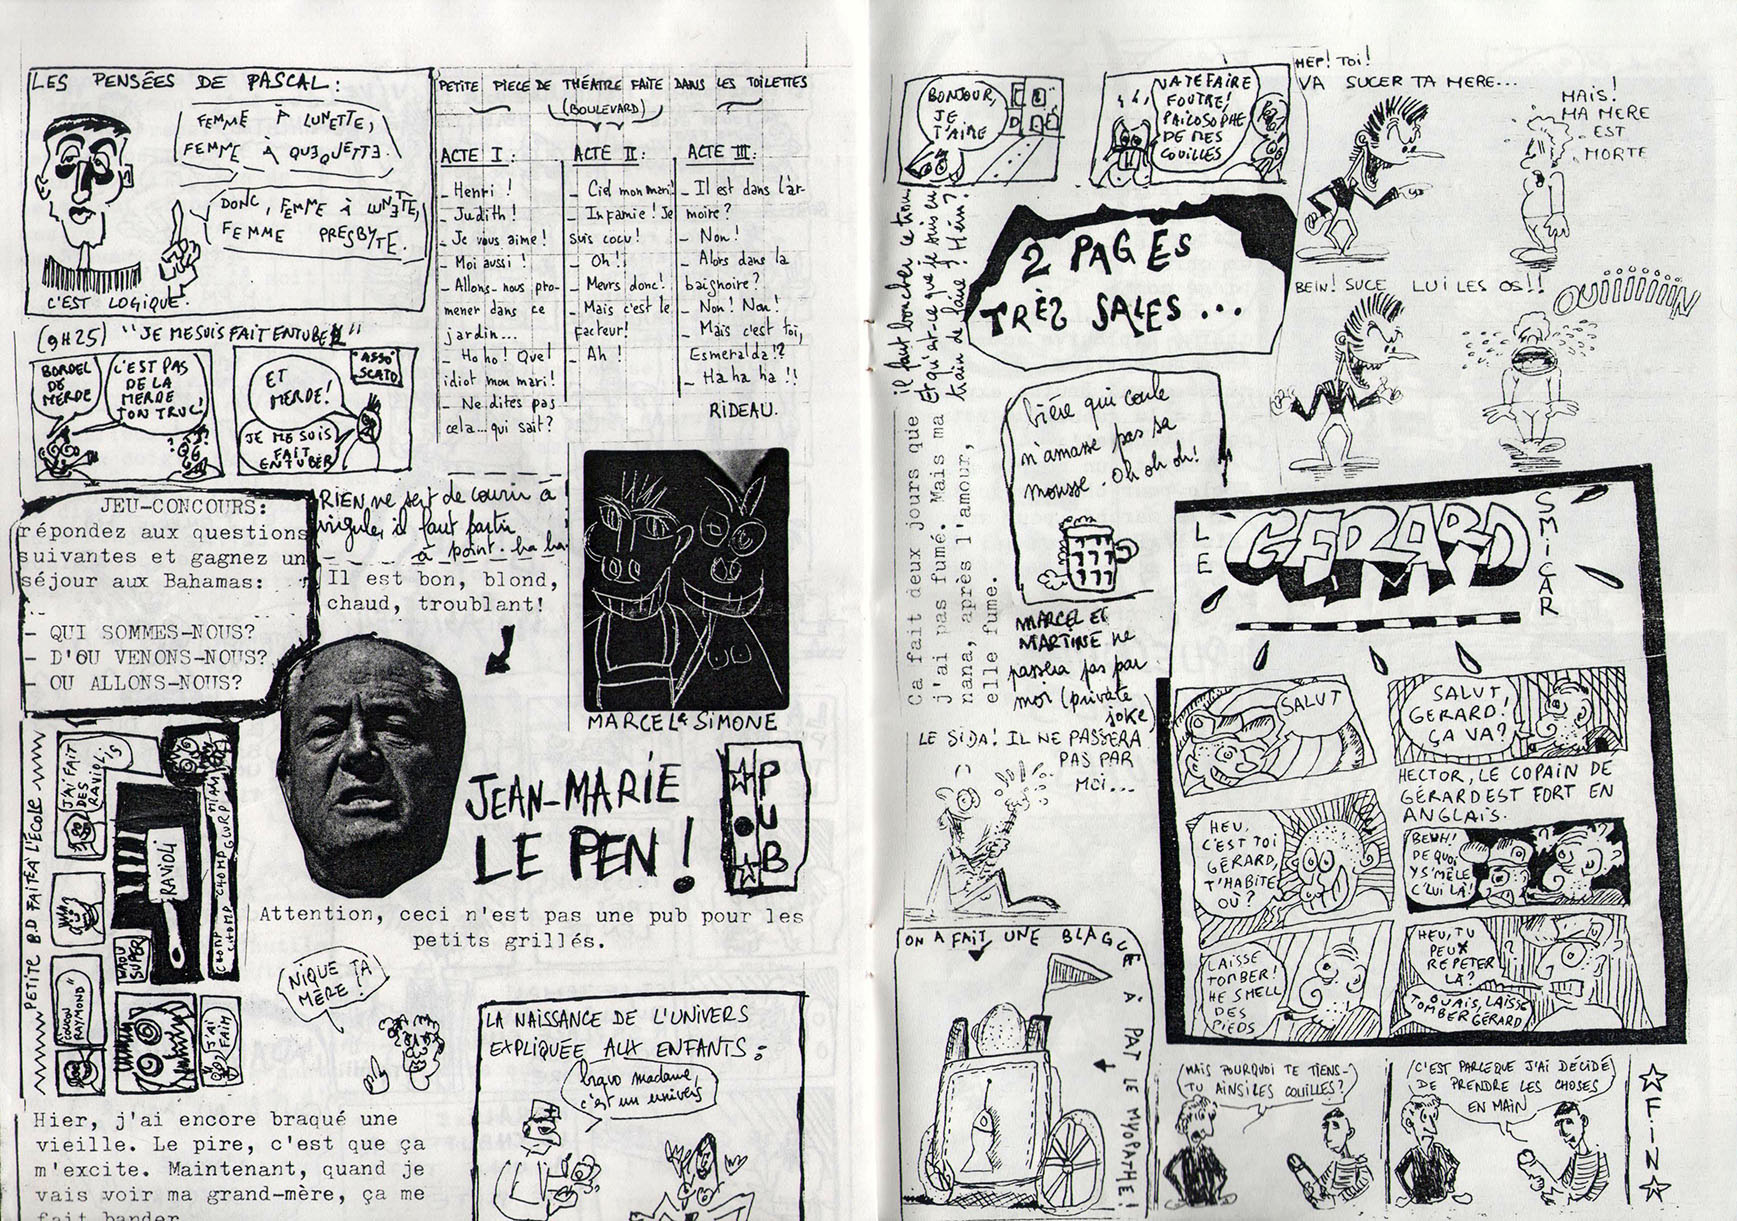 LES PENSÉES DE PASCAL :
FEMME À LUNETTE,
FEMME À QUÉQUETTE.
DONC, FEMME À LUNETTE,
FEMME PRESBYTE.
C'EST LOGIQUE.
(9H25) "JE ME SUIS FAIT ENTUBER"
BORDEL
DE
MERDE
C'EST PAS
DE LA
MERDE
TON TRUC!
ET
MERDE!
"ASSO"
SCATO
JE ME SUIS
FAIT
ENTUBER
PETITE PIECE DE THÉATRE FAITE DANS LES TOILETTES
(BOULEVARD)
ACTE I :
- Henri !
- Judith !
- Je vous aime !
- Moi aussi !
- Allons-nous pro-
mener dans ce
jardin...
- Ho ho ! Quel
idiot mon mari!
- Ne dites pas
cela... qui sait?
ACTE II :
- Ciel mon mari!
- Infamie ! Je
suis cocu !
- Oh !
- Meurs donc!
- Mais c'est le
facteur!
- Ah !
ACTE III :
- Il est dans l'ar-
moire ?
- Non !
- Alors dans la
baignoire?
- Non! Non!
- Mais c'est toi,
Esmeralda!?
- Ha ha ha !!
RIDEAU.
JEU-CONCOURS:
répondez aux questions
suivantes et gagnez un
séjour aux Bahamas:
- QUI SOMMES-NOUS?
- D'OU VENONS-NOUS?
- OU ALLONS-NOUS?
RIEN ne sert de courir à
virgule, il faut partir
à point. ha ha
Il est bon, blond,
chaud, troublant!
MARCEL & SIMONE
JEAN-MARIE
LE PEN !
PUB
Attention, ceci n'est pas une pub pour les
petits grillés.
PETITE B.D FAITE À L'ÉCOLE
J'AI FAIT
DES
RAVIOLIS
RAVIOLI
CHOMP CHOMP CHOMP GLURP MIAM
WAOU
SUPER
"COUCOU
RAYMOND"
J'AI
FAIM
NIQUE TA
MÈRE !
Hier, j'ai encore braqué une
vieille. Le pire, c'est que ça
m'excite. Maintenant, quand je
vais voir ma grand-mère, ça me
fait bander
LA NAISSANCE DE L'UNIVERS
EXPLIQUÉE AUX ENFANTS :
bravo madame,
c'est un univers
BONJOUR,
JE
T'AIME
VA TE FAIRE
FOUTRE!
PHILOSOPHE
DE MES
COUILLES
HEP! TOI!
VA SUCER TA MERE...
MAIS!
MA MERE
EST
MORTE
BEIN! SUCE LUI LES OS!!
OUIIIIIIIIN
2 PAGES
TRÈS SALES...
Ca fait deux jours que
j'ai pas fumé. Mais ma
nana, après l'amour,
elle fume.
il faut boucher le trou
Et qu'est-ce que je suis en
train de faire ? Hein ?
bière qui coule
n'amasse pas sa
mousse. Oh oh oh!
MARCEL ET
MARTINE ne
passera pas par
moi (private
joke)
LE SIDA! IL NE PASSERA
PAS PAR
MOI...
ON A FAIT UNE BLAGUE À PAT LE MYOPATHE!
LE GERARD SMICAR
SALUT
SALUT
GERARD!
ÇA VA?
HECTOR, LE COPAIN DE
GÉRARD EST FORT EN
ANGLAIS.
HEU,
C'EST TOI
GÉRARD,
T'HABITE
OÙ?
BEUH!
DE QUOI
Y S'MÊLE
C'LUI LÀ!
LAISSE
TOMBER!
HE SMELL
DES
PIEDS
HEU, TU
PEUX
REPETER
LÀ?
OUAIS, LAISSE
TOMBER GÉRARD
MAIS POURQUOI TE TIENS-
TU AINSI LES COUILLES?
C'EST PARCEQUE J'AI DÉCIDÉ
DE PRENDRE LES CHOSES
EN MAIN
FIN